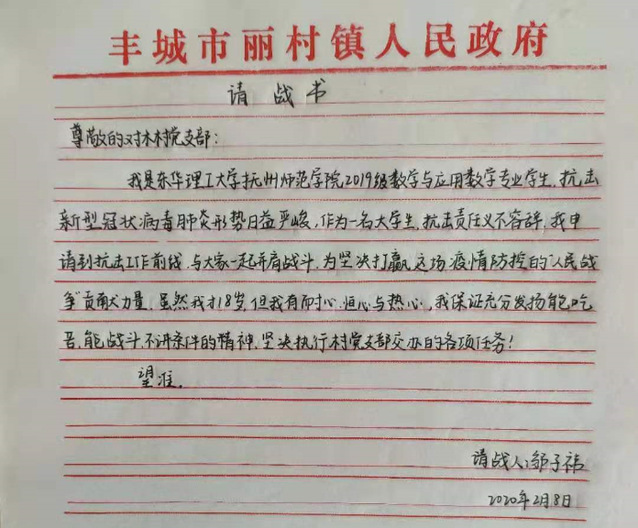 丰城市丽村镇人民政府
请战书
尊敬的对木村党支部：
我是东华理工大学抚州师范学院2019级数学与应用数学专业学生，抗击
新型冠状病毒肺炎形势日益严峻，作为一名大学生，抗击责任义不容辞，我申
请到抗击工作前线，与大家一起并肩战斗，为坚决打赢这场疫情防控的“人民战
争”贡献力量，虽然我才18岁，但我有耐心、恒心与热心，我保证充分发扬能吃
苦，能战斗，不讲条件的精神，坚决执行村党支部交办的各项任务！
望准，
请战人：邹子祎
2020年2月8日